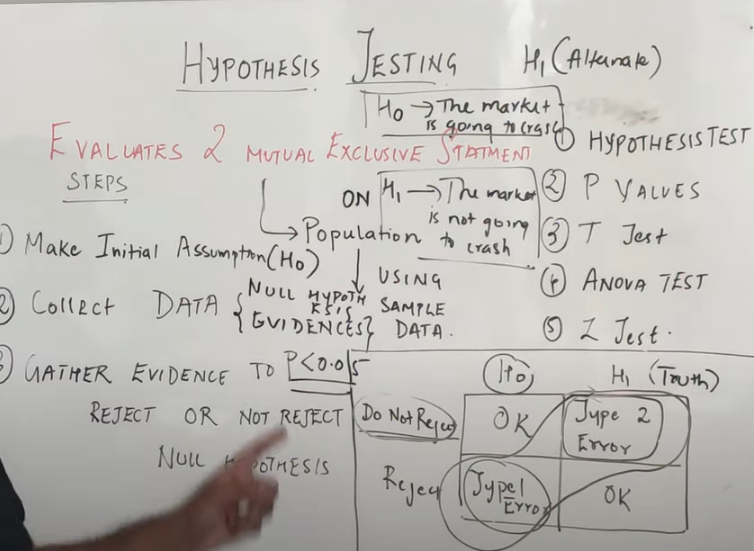 HYPOTHESIS TESTING H1 (Alternate)
H0 → The market
is going to crash
EVALUATES 2 MUTUAL EXCLUSIVE STATMENT
STEPS
ON
H1 → The market
is not going
to crash
→ Population
1) Make Initial Assumption (H0)
USING
SAMPLE
DATA.
2) Collect DATA { NULL HYPOTH
ESIS
{ EVIDENCES }
3) GATHER EVIDENCE TO P<0.05
REJECT OR NOT REJECT
NULL HYPOTHESIS
① HYPOTHESIS TEST
② P VALUES
③ T Test
④ ANOVA TEST
⑤ Z Test.
H0 H1 (Truth)
Do Not Reject OK Type 2
Error
Reject Type 1
Error OK